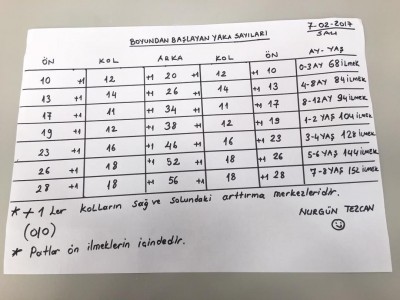 BOYUNDAN BAŞLAYAN YAKA SAYILARI
7-02-2017
SALI
ÖN KOL ARKA KOL ÖN AY-YAŞ
10 +1 12 +1 20 +1 12 +1 10 0-3 AY 68 ilmek
13 +1 14 +1 26 +1 14 +1 13 4-8 AY 84 ilmek
17 +1 11 +1 34 +1 11 +1 17 8-12 AY 94 ilmek
19 +1 12 +1 38 +1 12 +1 19 1-2 YAŞ 104 ilmek
23 +1 16 +1 46 +1 16 +1 23 3-4 YAŞ 128 ilmek
26 +1 18 +1 52 +1 18 +1 26 5-6 YAŞ 144 ilmek
28 +1 18 +1 56 +1 18 +1 28 7-8 YAŞ 152 ilmek
* +1 Ler kolların sağ ve solundaki arttırma merkezleridir.
(010)
NURGÜN TEZCAN
* Patlar ön ilmeklerin içindedir.